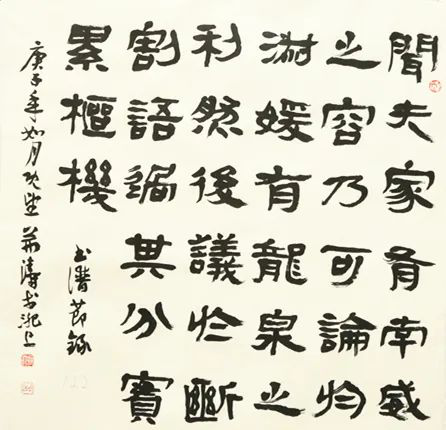 聞夫家有南威
之容乃可論於
淑媛有龍泉之
利然後議於斷
割語過其分實
累樞機
书譜節録
庚子年如月既望 濤书 上